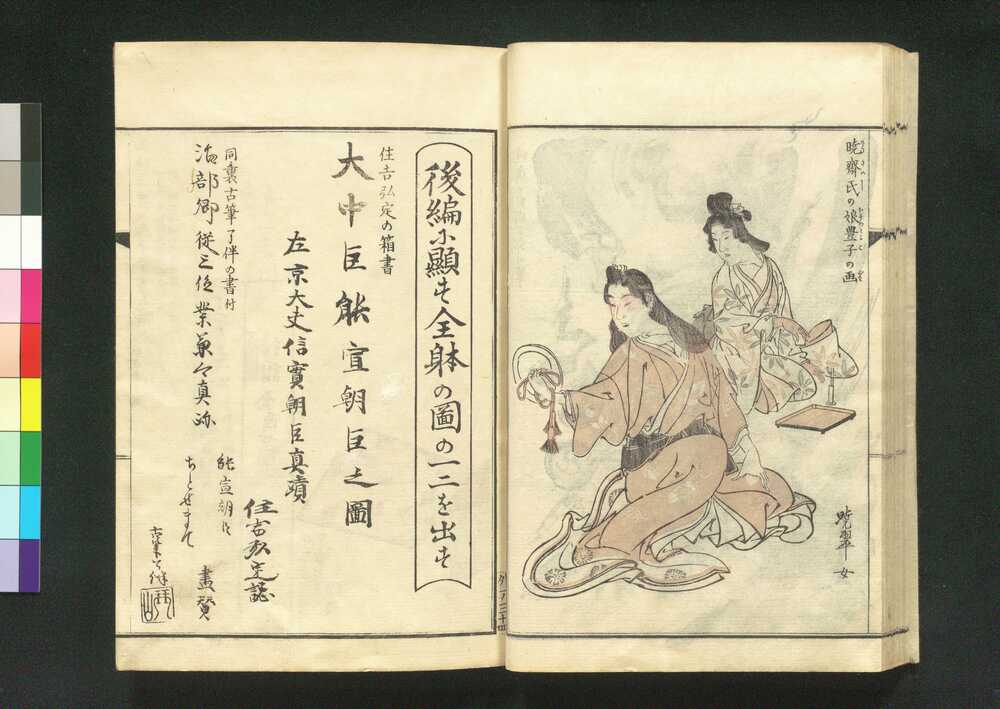 暁齋氏の娘豊子の画
暁翠女
後編に顕す全躰の圖の一二を出す
住吉弘定の箱書
大中臣能宣朝臣之圖
左京大夫信實朝臣真蹟
住吉弘定誌
同裏古筆了伴の書付
治部卿従三位業兼々真跡
能宣朝臣
ちとせまて
畫賛